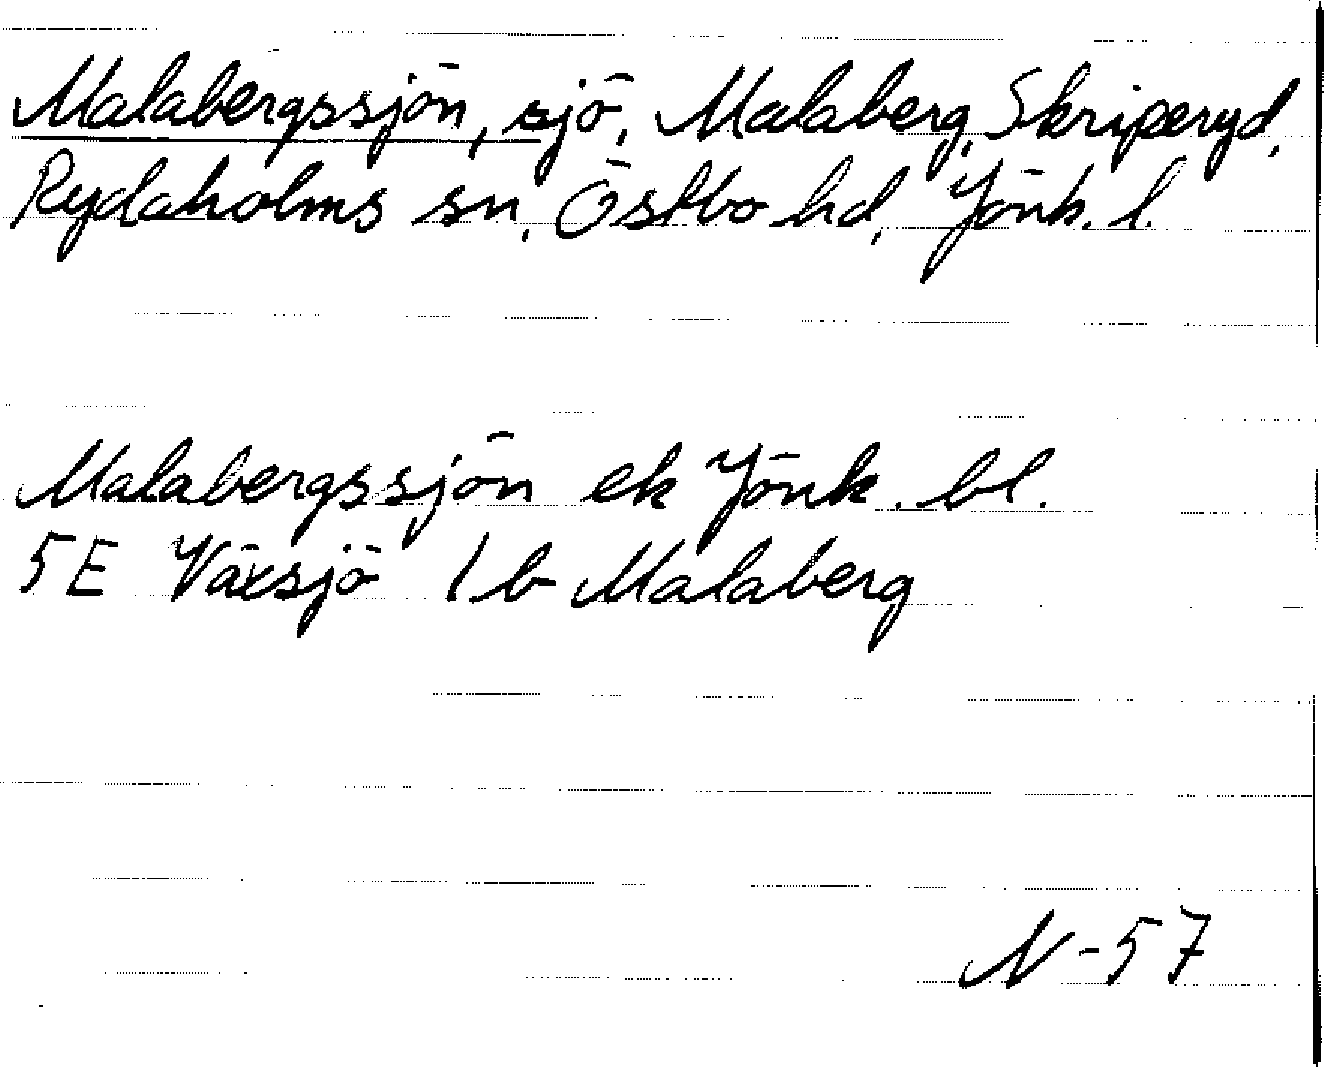 Malabergssjön, sjö, Malaberg, Skriperyd,
Rydaholms sn, Östbo hd, Jönk. l.
Malabergssjön ek Jönk. bl.
5E Växsjö 1b Malaberg
N-57